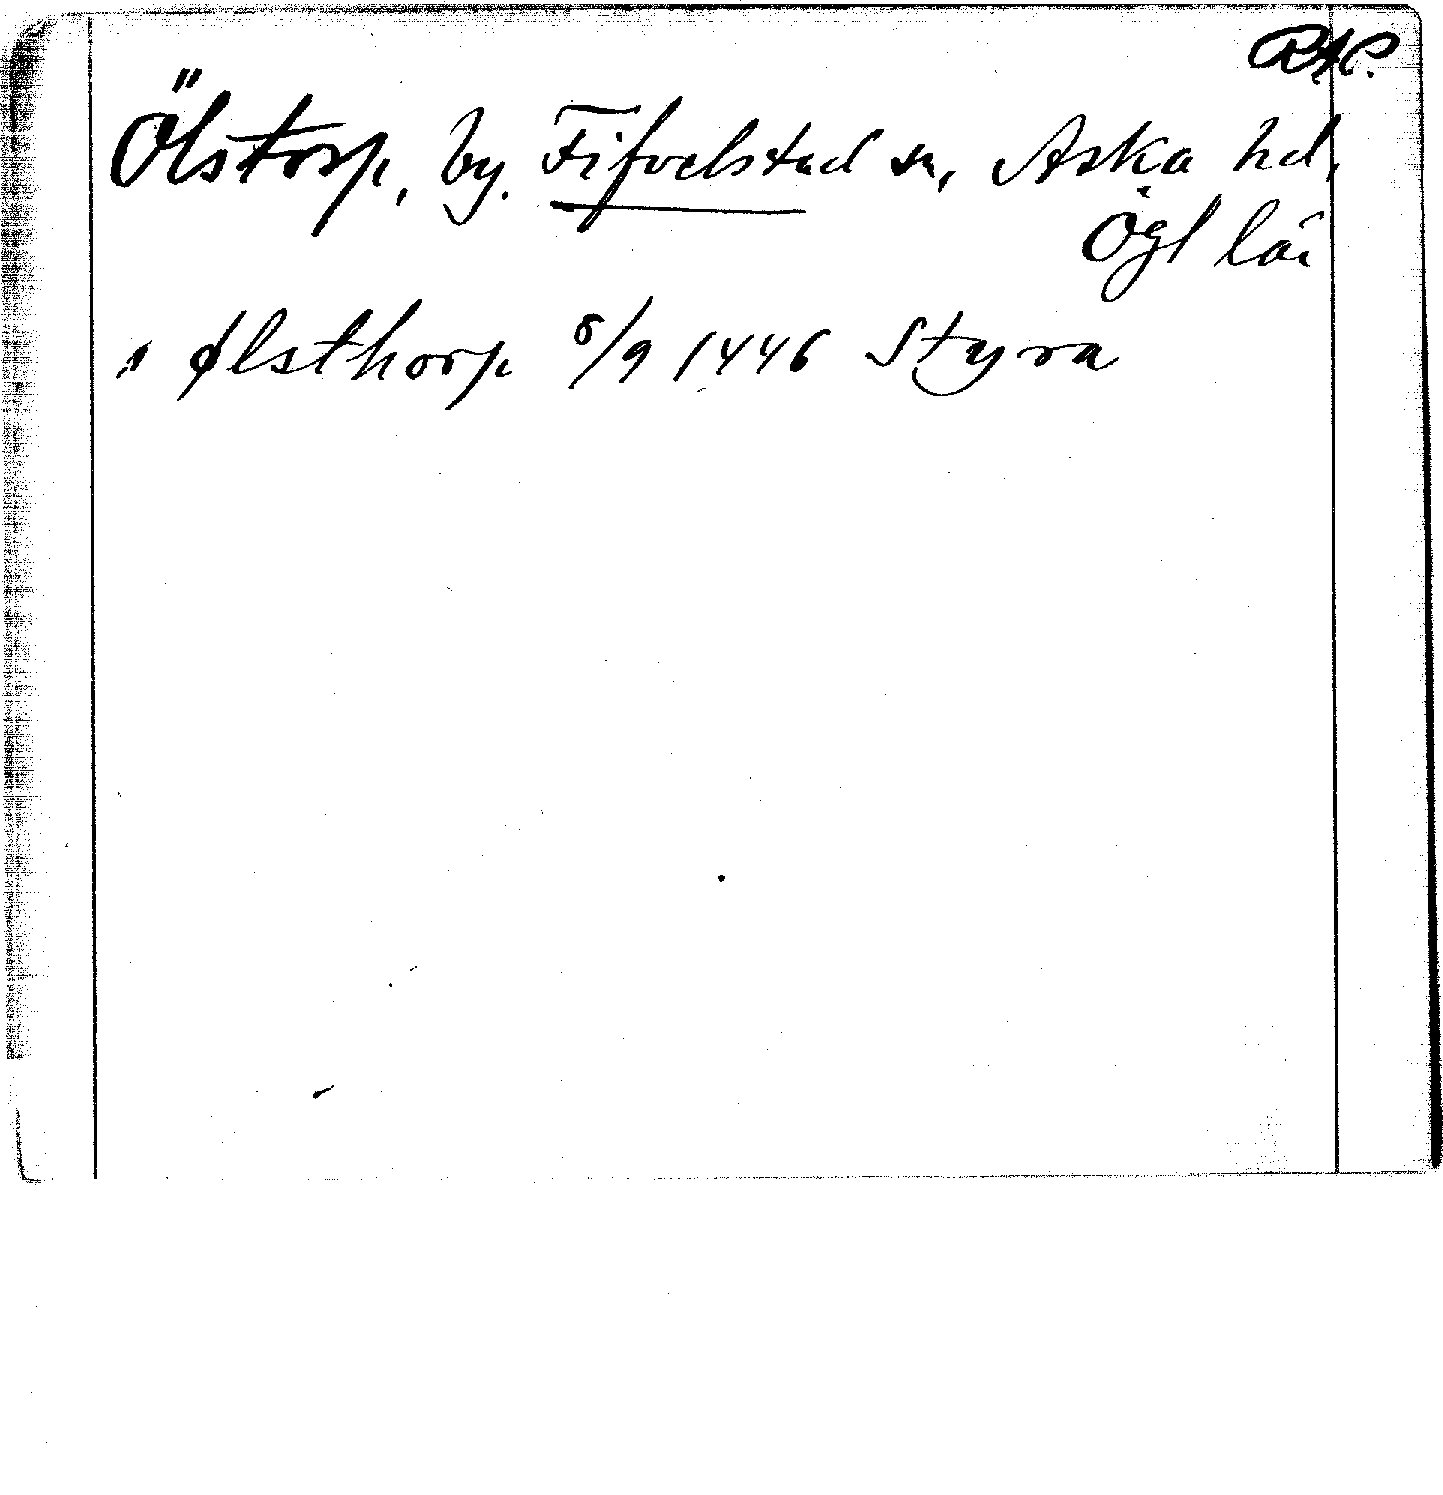 RAP.
Ölstorp, by. Fifvelstad sn, Aska hd,
Ögl län
i Ølsthorp 8/9 1446 Styra